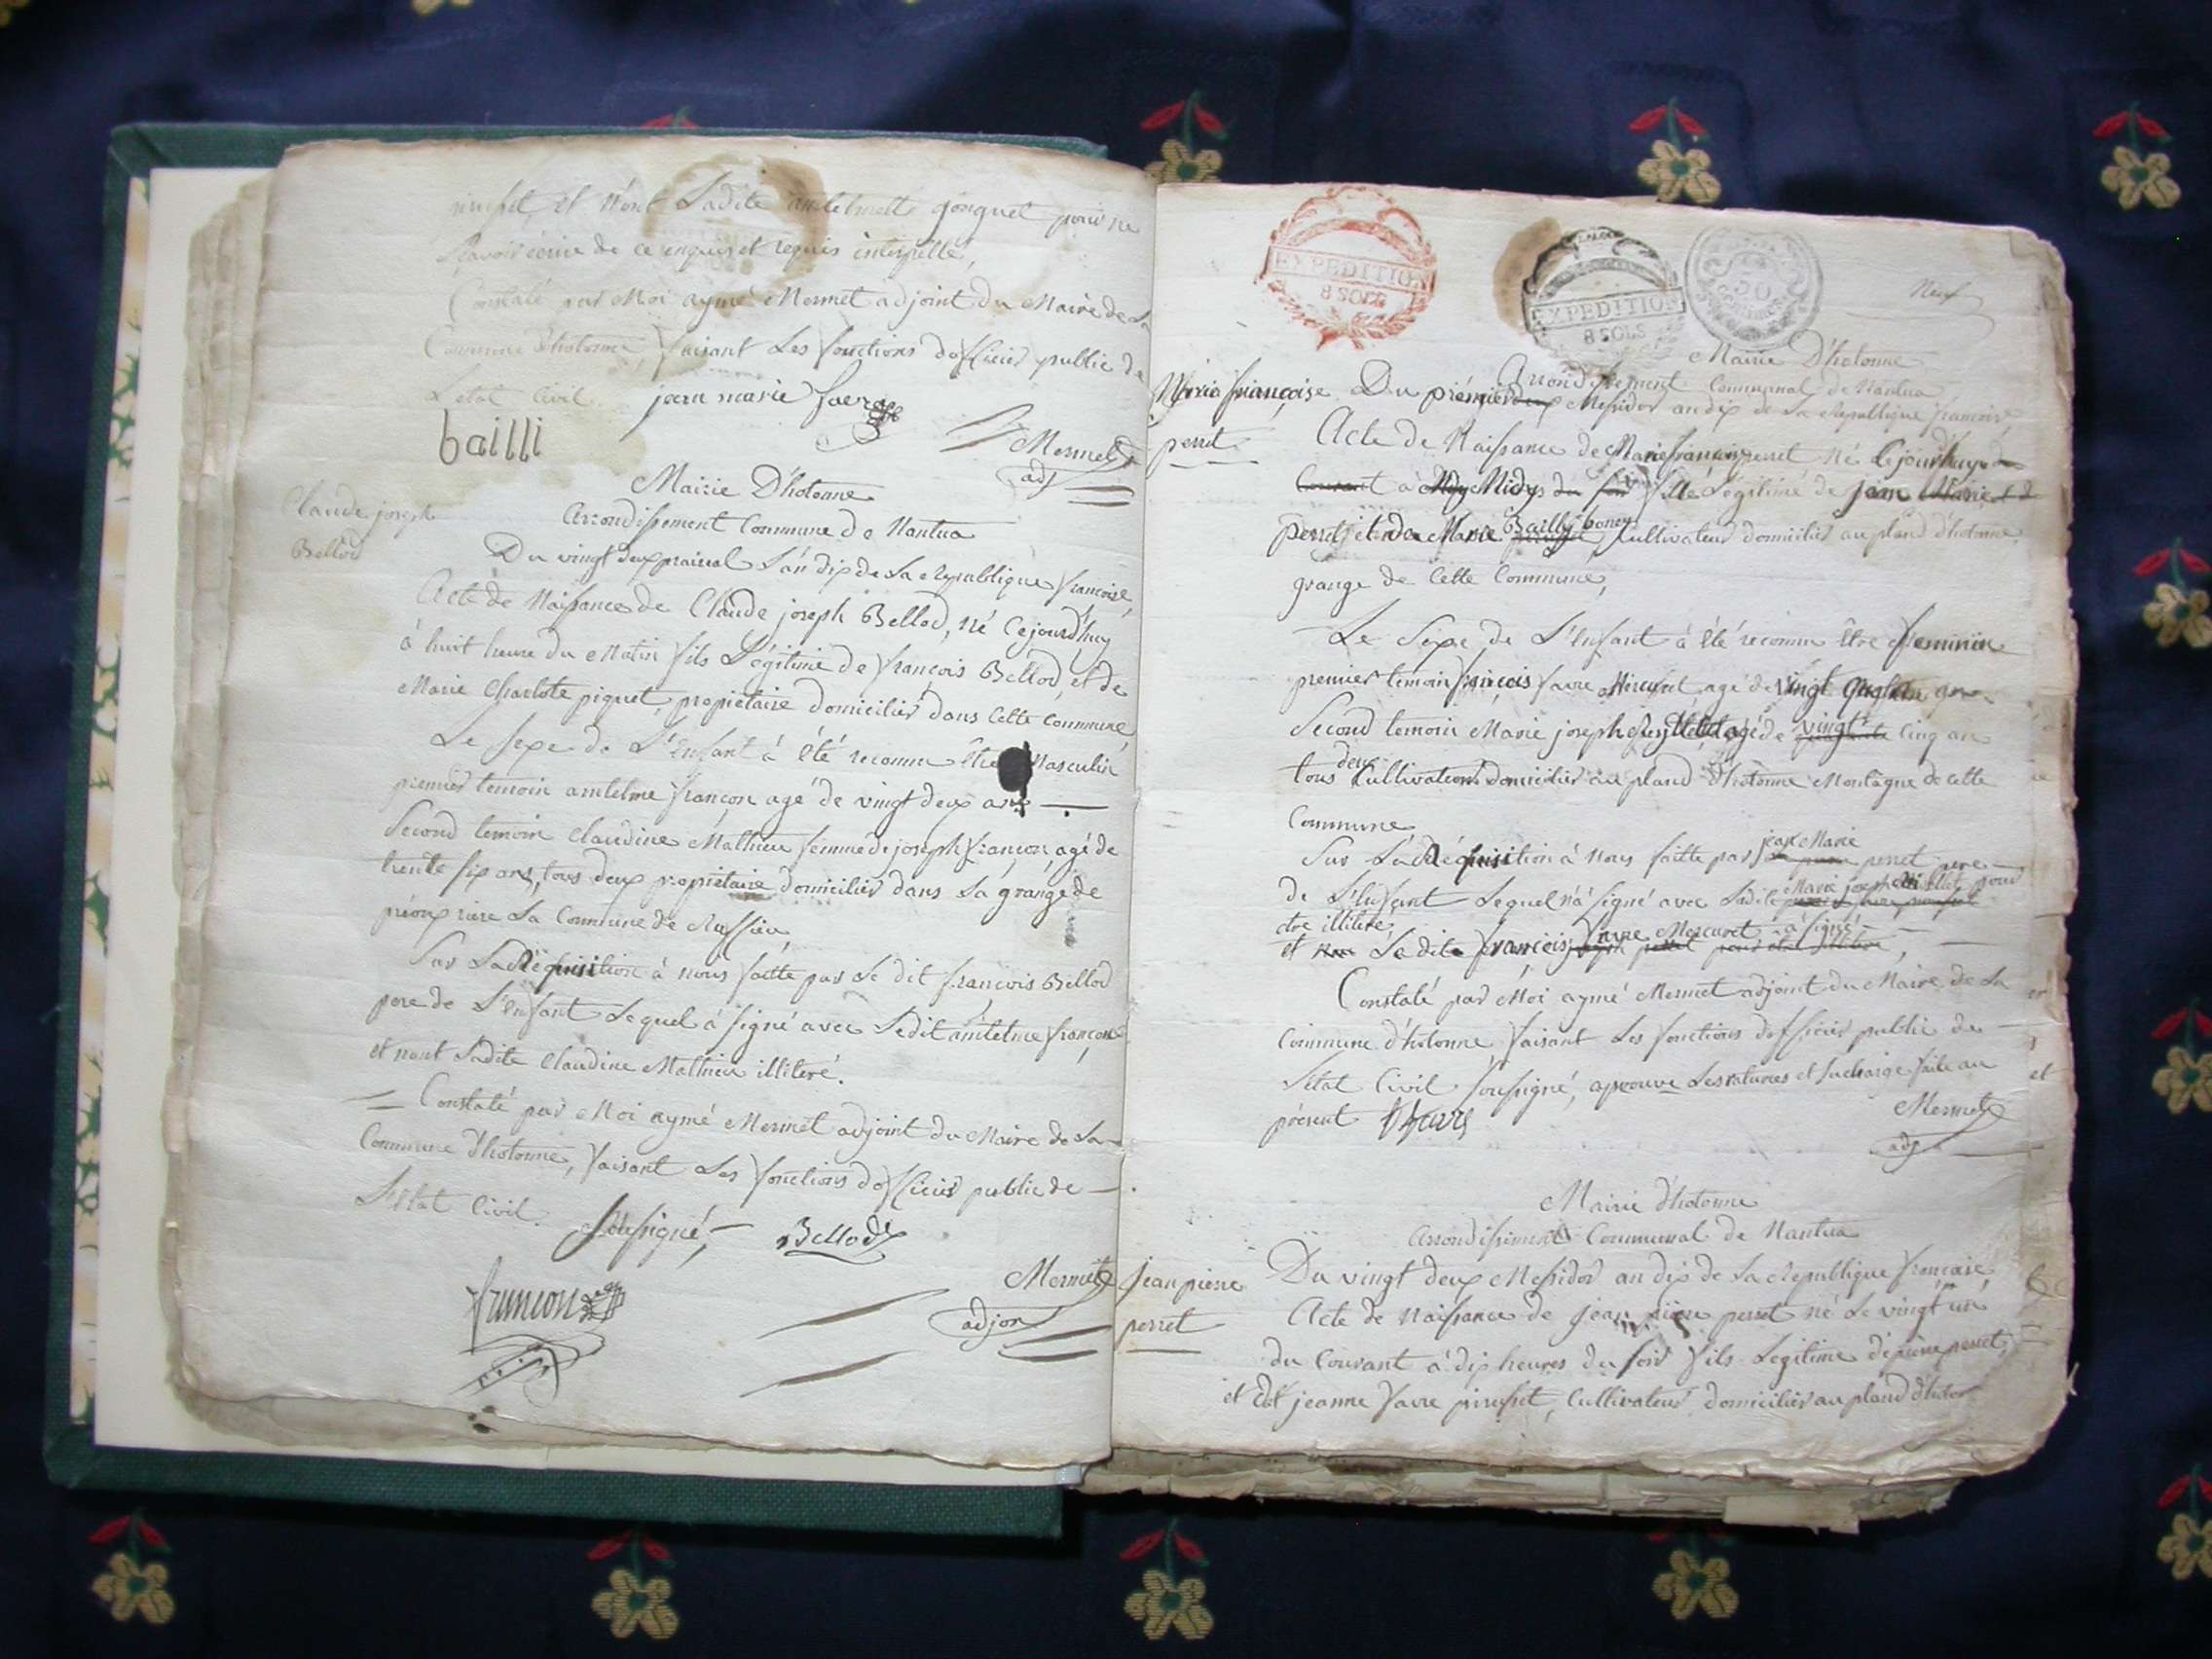 et n'ont Ladite antelmette gonguet pour ne
Savoir écrire de ce enquis et requis interpellé,
Constalé par Moi aymé Mermet adjoint du Maire de La
Commune D'hotonne, faisant Les fonctions dofficier public de
L'etat Civil. jean marie
bailli
Mermet
adj
Claude joseph
Bellod
Mairie D'hotonne
Arrondissement Commune de Nantua
Du vingt deux prairial L'an dix de La Republique francoise,
Acte de Naissance de Claude joseph Bellod, né Cejourd'huy
à huit heure du Matin fils Légitime de françois Bellod, et de
Marie Charlote piquet, propietaire domicilié dans Cette Commune,
Le Sexe de L'Enfant à été reconnu être Masculin
premier temoin antelme françon agé de vingt deux ans
Second temoin Claudine Mathieu femme de joseph françon agé de
trente six ans, tous deux propietaire domiciliés dans La grange de
rière La Commune de Ruffieu,
Sur La Réquisition à nous faitte par Le dit françois Bellod
pere de L'enfant Lequel à signé avec Ledit antelme françon
et nont Ladite Claudine Mathieu illiteré.
Constalé par Moi aymé Mermet adjoint du Maire de La
Commune d'hotonne, faisant Les fonctions dofficier public de
L'Etat Civil. Sousigné, Bellod
francon
Mermet
adjon
EXPEDITION
8 SOLS
EXPEDITION
8 SOLS
50
CENTIMES
Neuf
Mairie D'hotonne
Arrondissement Communal de Nantua
Maria françoise
perret
Du prémier deux Messidor an dix de La Republique francoise,
Acte de Naissance de Marie françoise perret Né Cejourdhuy
Courant à Midy du soir fille Légitime de jean Marie
perret et de Marie Bailly bonet, Cultivateur domicilié au pland d'hotonne,
grange de Cette Commune,
Le Sexe de L'Enfant à été reconnu être feminin
premier temoin françois favre Mercuret agé de vingt quatre ans
Second temoin Marie joseph agé de vingt Cinq ans
tous deux Cultivateurs domiciliés au pland D'hotonne Montagne de cette
Commune,
Sur La Réquisition à Nous faitte par jean Marie perret pere
de L'Enfant Lequel n'à signé avec Ladite Marie joseph pour
etre illiteré,
et Le dit françois favre Mercuret à signé
Constalé par Moi aymé Mermet adjoint du Maire de La
Commune d'hotonne, faisant Les fonctions dofficier public de
L'etat Civil Sousigné, aprouve Les ratures et Sucharge faite au
présent Favre
Mermet
adj
Mairie d'hotonne
Arrondissiment Communal de Nantua
jean pierre
perret
Du vingt deux Messidor an dix de La Republique francaise,
Acte de Naissance de jean piere perret né Le vingt un
du Courant à dix heures du soir fils Legitime de piere perret,
et de jeanne favre pirusset, Cultivateur domicilié au pland d'hoton